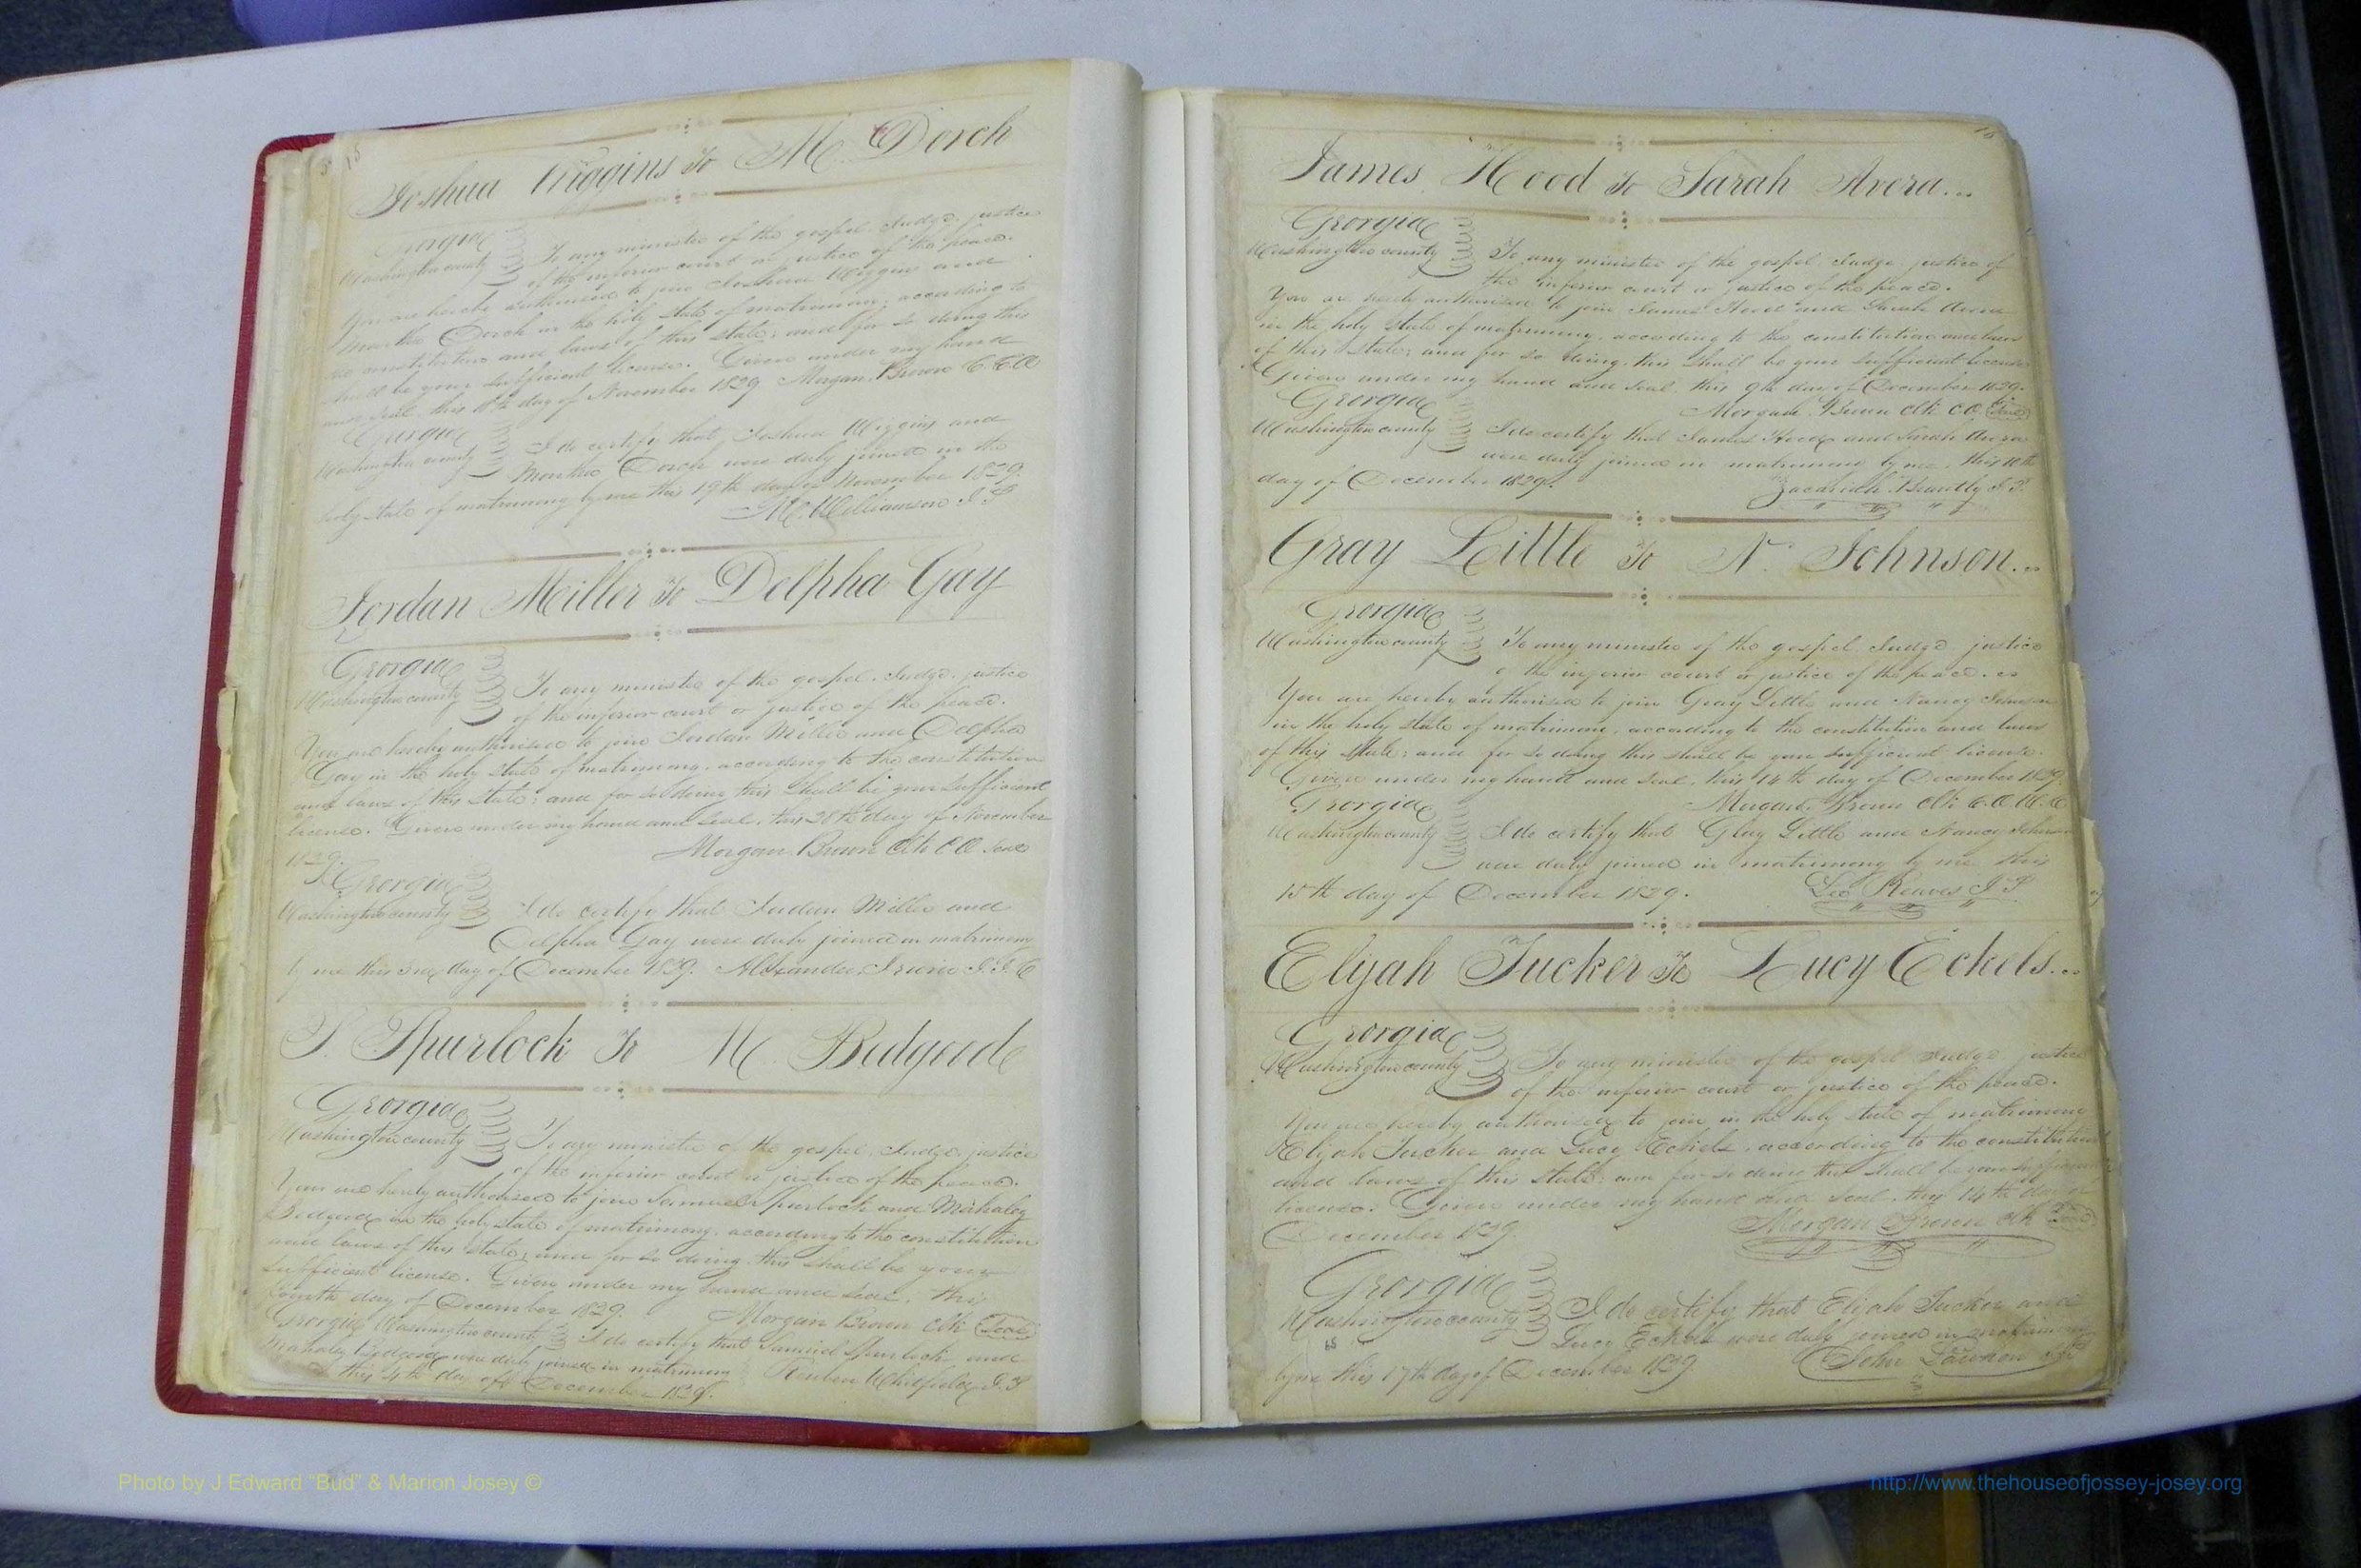 15
Joshua Wiggins To M. Dorch
Georgia
Washington county
To any minister of the gospel, Judge, justice
of the inferior court or justice of the peace.
You are hereby authorised to join Joshua Wiggins and
Martha Dorch in the holy state of matrimony, according to
constitution and laws of this state; and for so doing this
shall be your sufficient license. Given under my hand
and seal, this day of November 1829 Morgan Brown C.C.O
Georgia
Washington county
I do certify that Joshua Wiggins and
Martha Dorch were duly joined in the
holy state of matrimony by me this 19th day of November 1829
M. Williamson J P
Jordan Miller To Delpha Gay
Georgia
Washington county
To any minister of the gospel, Judge, justice
of the inferior court or justice of the peace.
You are hereby authorised to join Jordan Miller and Delpha
Gay in the holy state of matrimony, according to the constitution
and laws of this state; and for so doing this shall be your sufficient
license. Given under my hand and seal, this 28th day of November
1829.
Morgan Brown Clk C O Seal
Georgia
Washington county
I do certify that Jordan Miller and
Delpha Gay were duly joined in matrimony
by me this 3rd day of December 1829. Alexander Irwin J.I.C
S. Spurlock To M Bedgood
Georgia
Washington county
To any minister of the gospel, Judge, justice
of the inferior court or justice of the peace.
You are hereby authorised to join Samuel Spurlock and Mahaley
Bedgood in the holy state of matrimony, according to the constitution
and laws of this state; and for so doing this shall be your
sufficient license. Given under my hand and seal, this
fourth day of December 1829.
Morgan Brown Clk Seal
Georgia Washington county I do certify that Samuel Spurlock and
Mahaley Bedgood were duly joined in matrimony
this 4th day of December 1829.
Reuben Whitfield J.P
James Hood To Sarah Avera...
Georgia
Washington county
To any minister of the gospel, Judge, justice of
the inferior court or justice of the peace.
You are hereby authorised to join James Hood and Sarah Avera
in the holy state of matrimony, according to the constitution and laws
of this state; and for so doing, this shall be your sufficient license
Given under my hand and seal, this 9th day of December 1829.
Morgan Brown Clk C.O. Seal
Georgia
Washington county
I do certify that James Hood and Sarah Avera
were duly joined in matrimony by me, this 10th
day of December 1829.
Zacariah Brantly J.P.
Gray Little To N. Johnson...
Georgia
Washington county
To any minister of the gospel, Judge, justice
of the inferior court or justice of the peace.
You are hereby authorised to join Gray Little and Nancy Johnson
in the holy state of matrimony, according to the constitution and laws
of this state; and for so doing this shall be your sufficient license.
Given under my hand and seal, this 14th day of December 1829.
Morgan Brown Clk C.O.W.C
Georgia
Washington county
I do certify that Gray Little and Nancy Johnson
were duly joined in matrimony by me this
15th day of December 1829.
Geo Reaves J P
Elijah Tucker To Lucy Eckels...
Georgia
Washington county
To any minister of the gospel, Judge, justice
of the inferior court or justice of the peace.
You are hereby authorised to join in the holy state of matrimony
Elijah Tucker and Lucy Eckels, according to the constitution
and laws of this state; and for so doing this shall be your sufficient
license. Given under my hand and seal, this 14th day of
December 1829.
Morgan Brown Clk Seal
Georgia
Washington county
I do certify that Elijah Tucker and
Lucy Eckels were duly joined in matrimony
by me this 17th day of December 1829.
John Lawson
Photo by J Edward "Bud" & Marion Josey ©
http://www.thehouseofjossey-josey.org